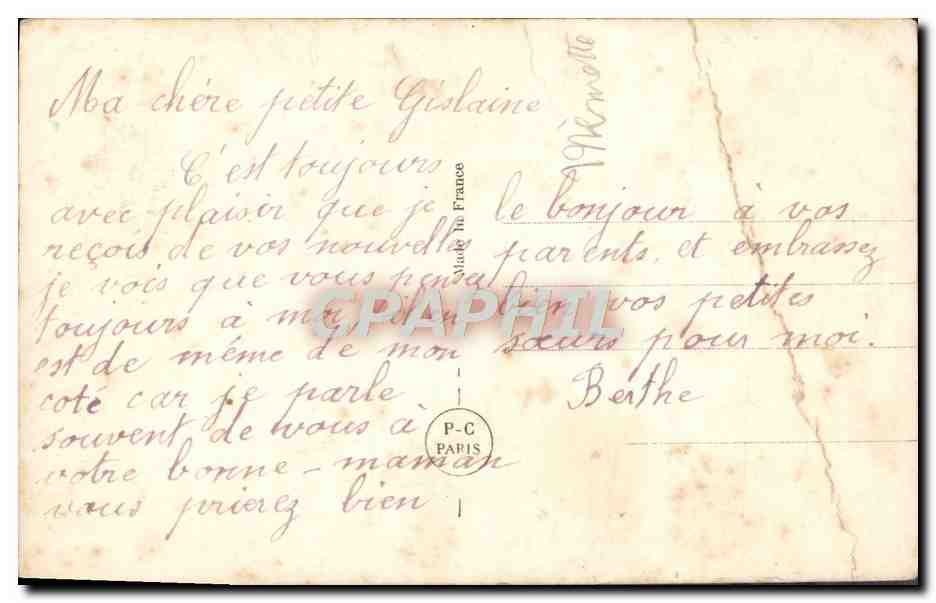 Ma chère petite Gislaine
C'est toujours
avec plaisir que je
reçois de vos nouvelles
je vois que vous pensez
toujours à moi il en
est de même de mon
coté car je parle
souvent de vous à
votre bonne-maman
vous prierez bien
le bonjour à vos
parents, et embrassez
bien vos petites
sœurs pour moi.
Berthe
Made in France
P-C
PARIS
CPAPHIL